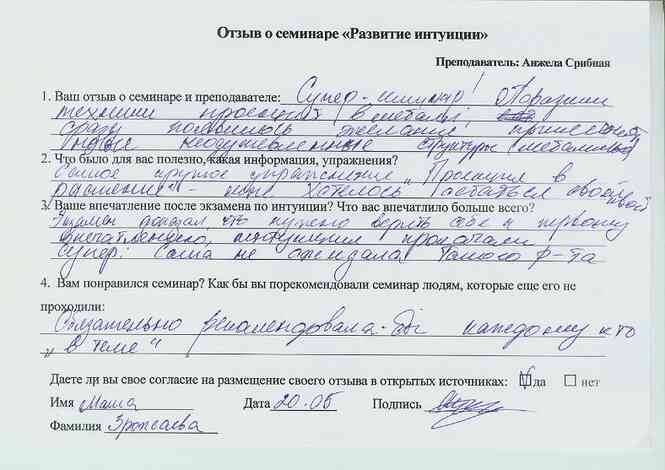 Отзыв о семинаре «Развитие интуиции»
Преподаватель: Анжела Срибная
1. Ваш отзыв о семинаре и преподавателе: Супер-семинар! Поразили
техники проекций в металлы,
сразу появилось желание
неодушевленные структуры
2. Что было для вас полезно, какая информация, упражнения?
Самое крутое упражнение „Проекция в
растение" - хотелось своей
3. Ваше впечатление после экзамена по интуиции? Что вас впечатлило больше всего?
Экзамен показал, что нужно верить себе и первому
впечатлению, прокачали
супер! Сама не ожидала такого р-та
4. Вам понравился семинар? Как бы вы порекомендовали семинар людям, которые еще его не
проходили:
Обязательно рекомендовала бы каждому кто
„в теме"
Даете ли вы свое согласие на размещение своего отзыва в открытых источниках: да нет
Имя Маша Дата 20.05 Подпись
Фамилия